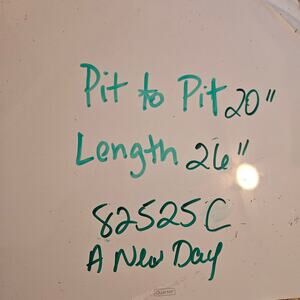 Pit to Pit 20"
Length 26"
82525C
A New Day
Quartet